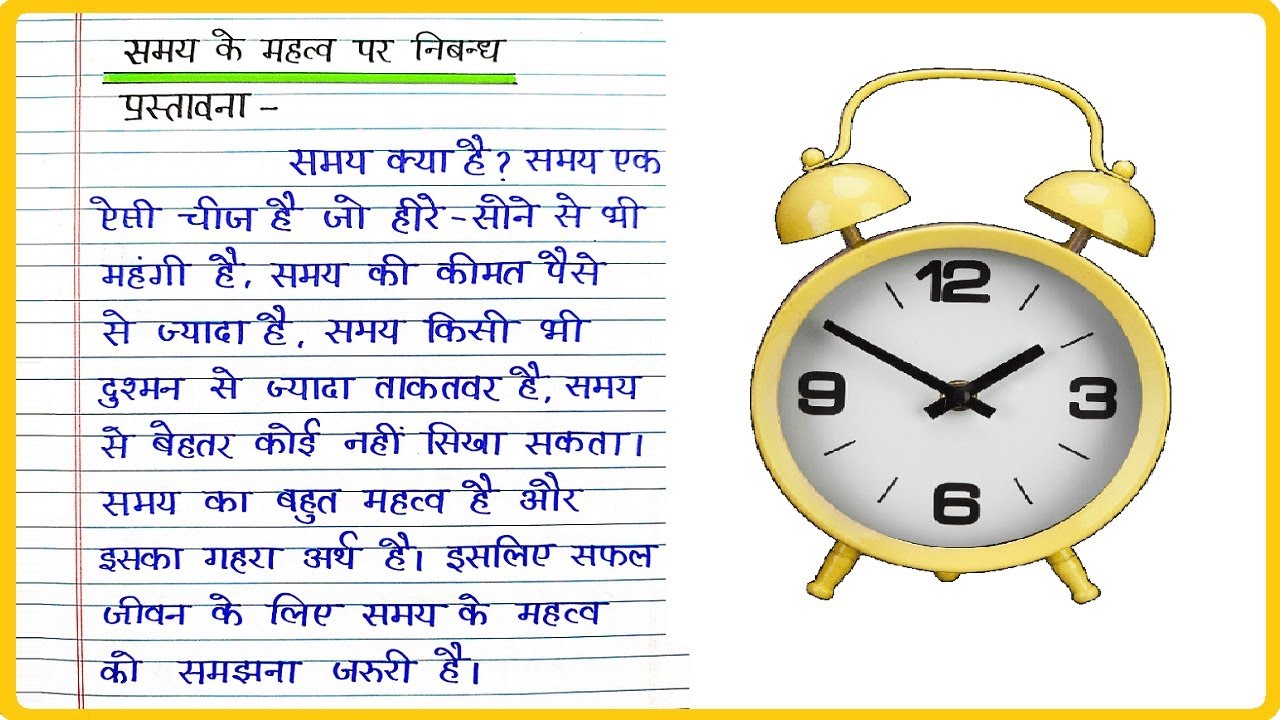 समय के महत्व पर निबन्ध
प्रस्तावना -
समय क्या है? समय एक
ऐसी चीज है जो हीरे-सोने से भी
महंगी है, समय की कीमत पैसे
से ज्यादा है, समय किसी भी
दुश्मन से ज्यादा ताकतवर है, समय
से बेहतर कोई नहीं सिखा सकता।
समय का बहुत महत्व है और
इसका गहरा अर्थ है। इसलिए सफल
जीवन के लिए समय के महत्व
को समझना जरुरी है।
12
3
6
9